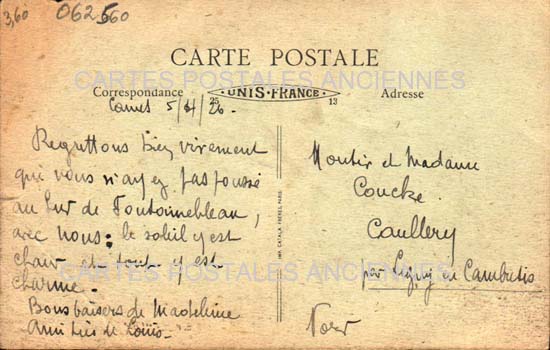 3,60
062560
CARTE POSTALE
CARTES POSTALES ANCIENNES
Correspondance
UNIS-FRANCE
25
13
Adresse
5/4/26.
Regrettons bien vivement
que vous n'ayez pas poussé
au Sur de Fontainebleau,
avec nous: le soleil y est
chair et tout y est
charme.
Bons baisers de Madeleine
Amitiés de Louis.
IMP. CATALA FRÈRES, PARIS
Monsieur et Madame
Coucke
Caullery
par Ligny en Cambrésis
Nord
CARTES POSTALES ANCIENNES